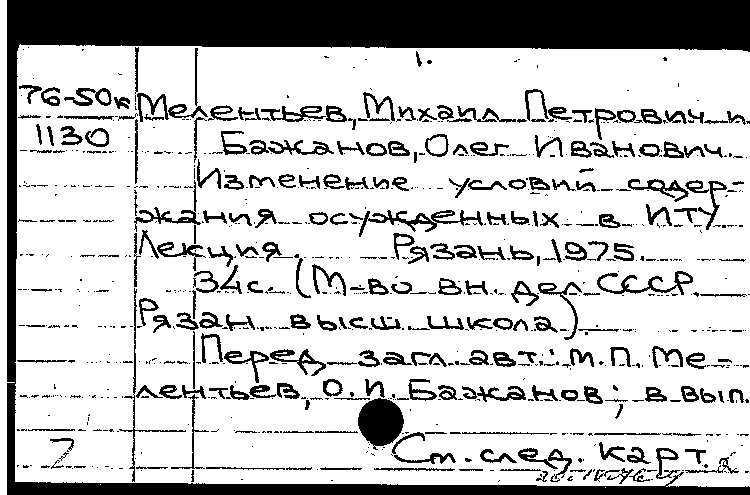 1.
76-50к Мелентьев, Михаил Петрович и
1130 Бажанов, Олег Иванович.
Изменение условий содер-
жания осужденных в ИТУ
Лекция. Рязань, 1975.
34с. (М-во вн. дел СССР.
Рязан. высш. школа).
Перед загл. авт.: М.П. Ме-
лентьев, О.И. Бажанов; в вып.
7 См. след. карт.